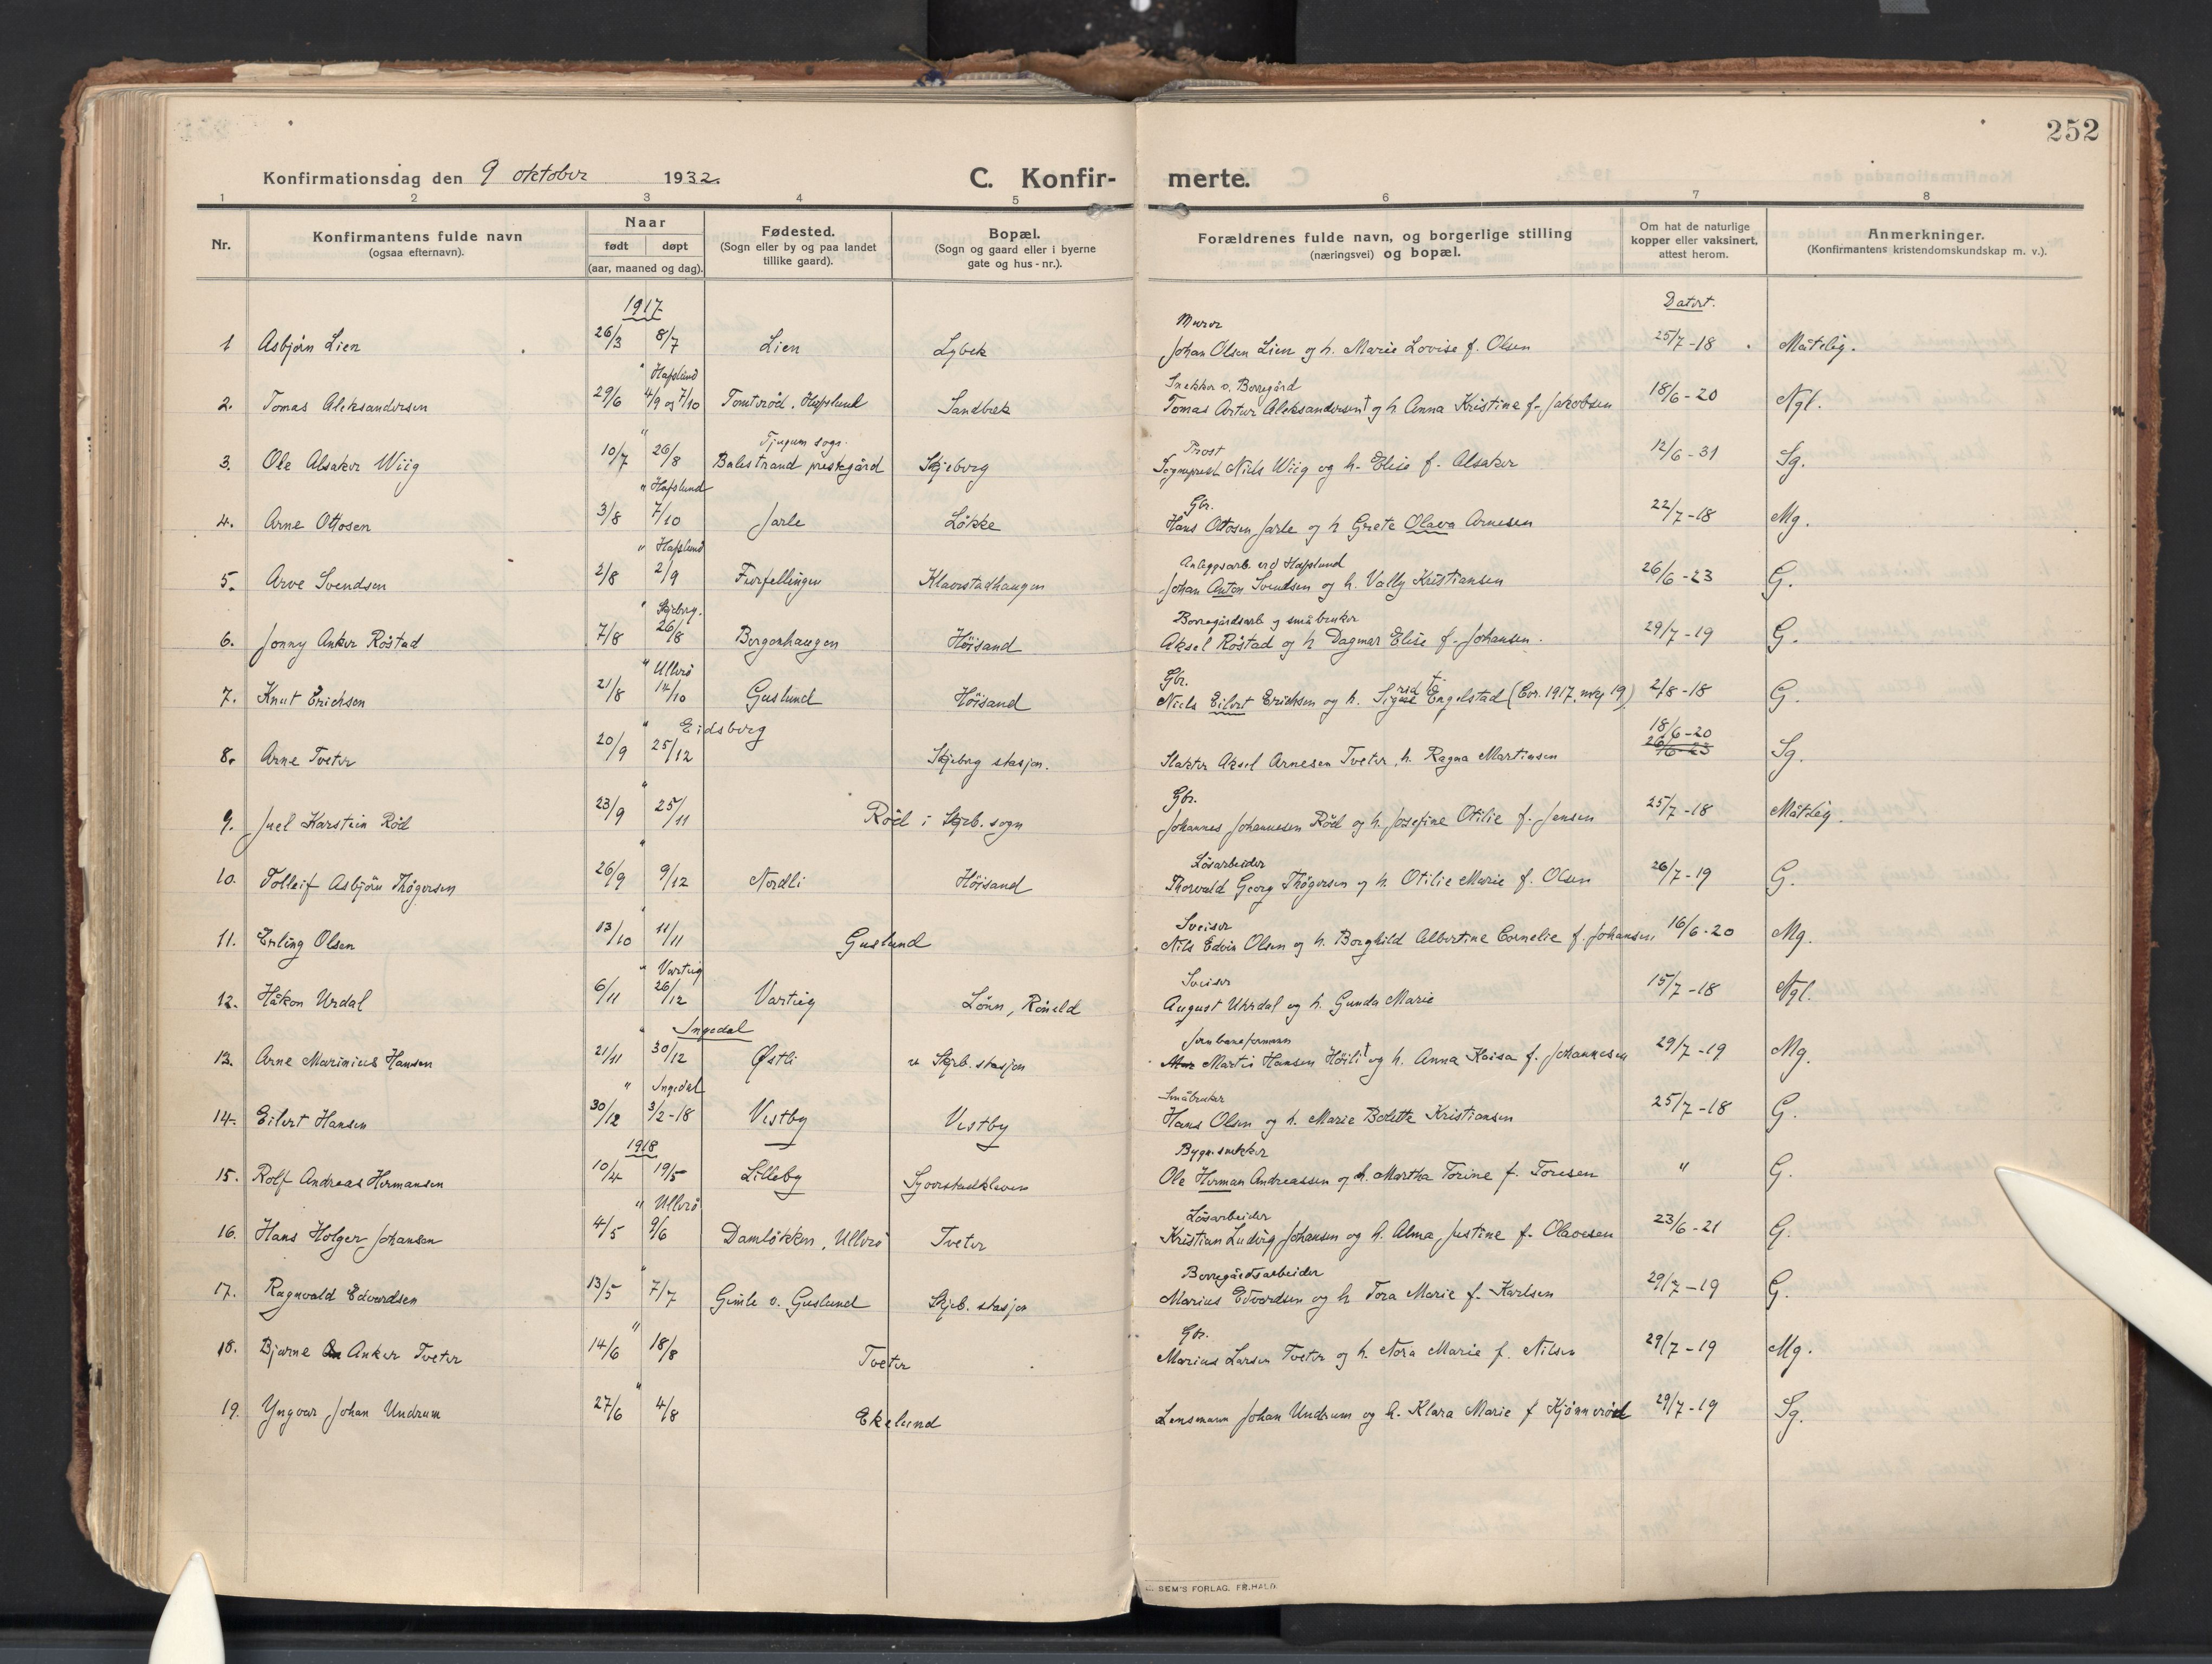 252
Konfirmationsdag den 9 oktober 1932. C. Konfir- merte.
1 2 3 4 5 6 7 8
Nr. Konfirmantens fulde navn (ogsaa efternavn). Naar født døpt (aar, maaned og dag). Fødested. (Sogn eller by og paa landet tillike gaard). Bopæl. (Sogn og gaard eller i byerne gate og hus-nr.). Forældrenes fulde navn, og borgerlige stilling (næringsvei) og bopæl. Om hat de naturlige kopper eller vaksinert, attest herom. Anmerkninger. (Konfirmantens kristendomskundskap m. v.).
1917 Datert.
Murer
1 Asbjörn Lien 26/3 8/7 Lien Lybek Johan Olsen Lien og h. Marie Lovise f. Olsen 25/7-18 Måtelig.
" Hafslund Snekker v. Borregård
2. Tomas Aleksandersen 29/6 4/9 og 7/10 Tomterød, Hafslund Sandbæk Tomas Artur Aleksandersen† og h. Anna Kristine f. Jakobsen 18/6-20 Ngl.
" Tjugum sogn. Prost
3. Ole Alsaker Wiig 10/7 26/8 Balestrand prestegård Skjeberg Sogneprest Niels Wiig og h. Elise f. Alsaker 12/6-31 Sg.
" Hafslund Gbr.
4. Arne Ottosen 3/8 7/10 Jarle Løkke Hans Ottosen Jarle og h Grete Olava Arnesen 22/7-18 Mg.
" Hafslund Anleggsarb. ved Hafslund
5. Arve Svendsen 2/8 2/9 Furfellingen Klavestadhaugen Johan Anton Svendsen og h. Vally Kristiansen 26/6-23 G.
" Skjeberg. Borregårdsarb og småbruker
6. Jonny Anker Röstad 7/8 26/8 Borgenhaugen Höisand Aksel Röstad og h Dagmar Elise f. Johansen. 29/7-19 G.
" Ullerö Gbr.
7. Knut Erichsen 21/8 14/10 Guslund Höisand Niels Eilert Erichsen og h. Sigrid Engelstad 2/8-18 G.
" Eidsberg 18/6-20
8. Arne Tveter 20/9 25/12 Skjeberg stasjon. Slakter Aksel Arnesen Tveter, h. Ragna Martinsen 26/6-23 Sg.
" Gbr.
9. Juel Karstein Röd 23/9 25/11 Röd i Skjeb. sogn Johannes Johannesen Röd og h. Josefine Otilie f. Jensen 25/7-18 Måtelig.
" Lösarbeider
10. Tolleif Asbjörn Thögersen 26/9 9/12 Nordli Höisand Thorvald Georg Thögersen og h. Otilie Marie f. Olsen 26/7-19 G.
" Sveiser
11. Erling Olsen 13/10 11/11 Guslund Nils Edvin Olsen og h. Borghild Albertine Cornelie f. Johansen. 16/6-20 Mg.
" Varteig Sveiser
12. Håkon Urdal 6/11 26/12 Varteig Lönn, August Uhrdal og h. Gunda Marie 15/7-18 Ngl.
" Ingedal Jernbaneformann
13. Arne Marinius Hansen 21/11 30/12 Østli v. Skjeb. stasjon Martin Hansen Höili† og h. Anna Kaisa f. Johannesen 29/7-19 Mg.
" Ingedal Småbruker
14. Eilert Hansen 30/12 3/2-18 Vestby Vestby Hans Olsen og h. Marie Bolette Kristiansen 25/7-18 G.
1918 Bygn.snekker
15. Rolf Andreas Hermansen 10/4 19/5 Lilleby Syverstadkleven Ole Herman Andreassen og h. Martha Torine f. Toresen " G.
" Ullerö Lösarbeider
16. Hans Holger Johansen 4/5 9/6 Damløkken, Ullerö Tveter Kristian Ludvig Johansen og h. Alma Justine f. Olavesen 23/6-21 G.
" Borregårdsarbeider
17. Ragnvald Edvardsen 13/5 7/7 Gimle v. Guslund Skjeb. stasjon Marius Edvardsen og h Tora Marie f. Karlsen 29/7-19 G.
" Gbr.
18. Bjarne Anker Tveter 14/6 18/8 Tveter Marius Larsen Tveter og h. Nora Marie f. Nilsen 29/7-19 Mg.
"
19. Yngvar Johan Undrum 27/6 4/8 Ekelund Lensmann Johan Undrum og h. Klara Marie f Kjönneröd 29/7-19 Sg.
SEM'S FORLAG. FR.HALD.